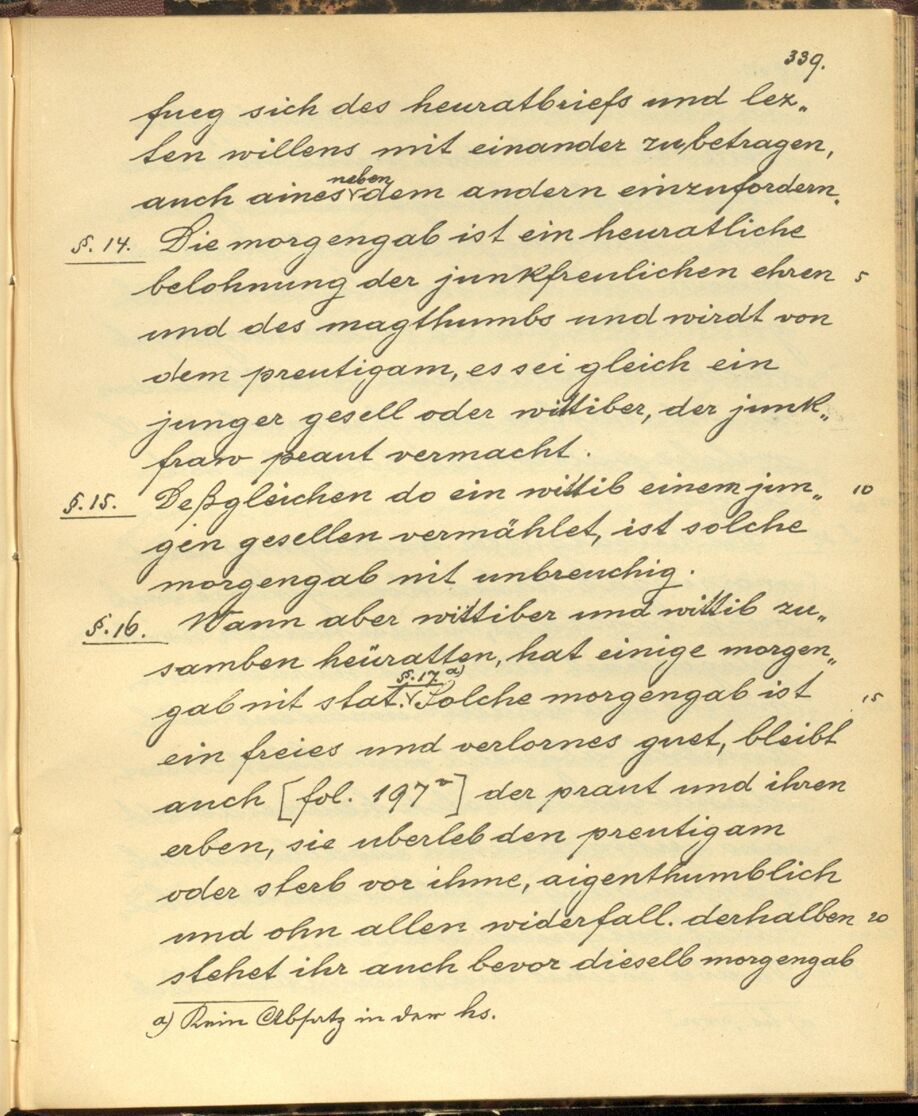 339.
fueg sich des heuratbriefs und lez„
ten willens mit einander zu betragen,
auch aines neben dem andern einzufordern.
§. 14. Die morgengab ist ein heuratliche
belohnung der junkfreulichen ehren 5
und des magthumbs und wirdt von
dem preutigam, es sei gleich ein
junger gesell oder wittiber, der junk„
fraw praut vermacht.
§. 15. Deßgleichen do ein wittib einem jun„ 10
gen gesellen vermählet, ist solche
morgengab nit unbreuchig.
§. 16. Wann aber wittiber und wittib zu„
samben heüratten, hat einige morgen„
gab nit stat. §. 17. a) Solche morgengab ist 15
ein freies und verlornes guet, bleibt
auch [fol. 197v] der praut und ihren
erben, sie uberleb den preutigam
oder sterb vor ihme, aigenthumblich
und ohn allen widerfall. derhalben 20
stehet ihr auch bevor dieselb morgengab
a) Kein Absatz in der hs.